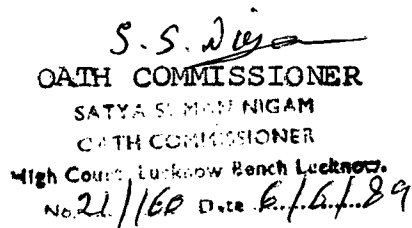 S. S. Nigam
OATH COMMISSIONER
SATYA S. MAN NIGAM
OATH COMMISSIONER
High Court, Lucknow Bench Lucknow.
No. 21/160 Date 6/6/89